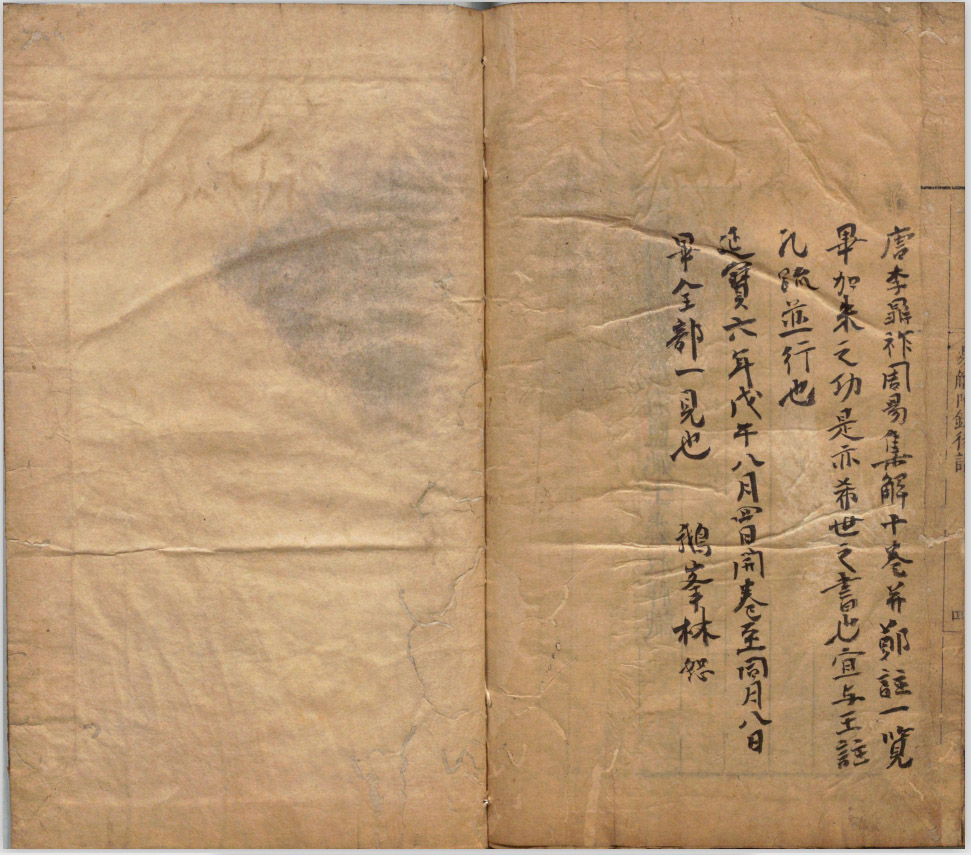 唐李鼎祚周易集解十卷并鄭註一覽
畢加朱之功是亦希世之書也宜与王註
孔疏並行也
延寶六年戊午八月四日開卷至同月八日
畢全部一見也　鵝峯林恕